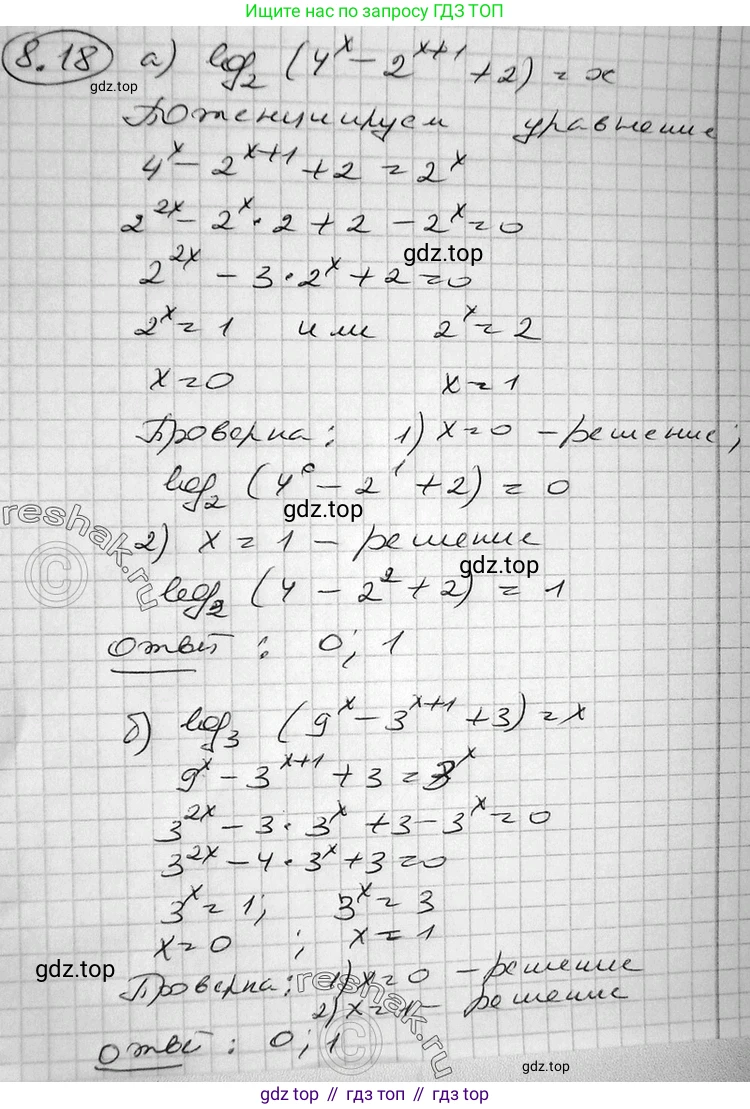 Ищите нас по запросу ГДЗ ТОП
8.18 а) log₂ (4ˣ − 2ˣ⁺¹ + 2) = x
gdz.top
Потенциируем уравнение
4ˣ − 2ˣ⁺¹ + 2 = 2ˣ
2²ˣ − 2ˣ · 2 + 2 − 2ˣ = 0
gdz.top
2²ˣ − 3 · 2ˣ + 2 = 0
2ˣ = 1 или 2ˣ = 2
x = 0 x = 1
Проверка: 1) x = 0 − решение;
log₂ (4⁰ − 2¹ + 2) = 0
gdz.top
reshak.ru
2) x = 1 − решение
gdz.top
©
log₂ (4 − 2² + 2) = 1
Ответ: 0; 1
б) log₃ (9ˣ − 3ˣ⁺¹ + 3) = x
9ˣ − 3ˣ⁺¹ + 3 = 3ˣ
3²ˣ − 3 · 3ˣ + 3 − 3ˣ = 0
3²ˣ − 4 · 3ˣ + 3 = 0
3ˣ = 1; 3ˣ = 3
x = 0 ; x = 1
reshak.ru
gdz.top
Проверка: 1) x = 0 − решение
2) x = 1 − решение
©
Ответ: 0; 1
gdz.top
gdz.top // гдз топ // gdz.top